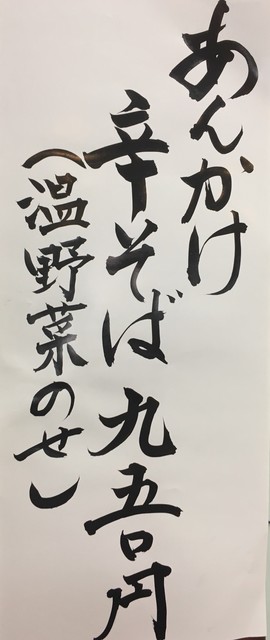 あんかけ
辛そば 九五〇円
（温野菜のせ）